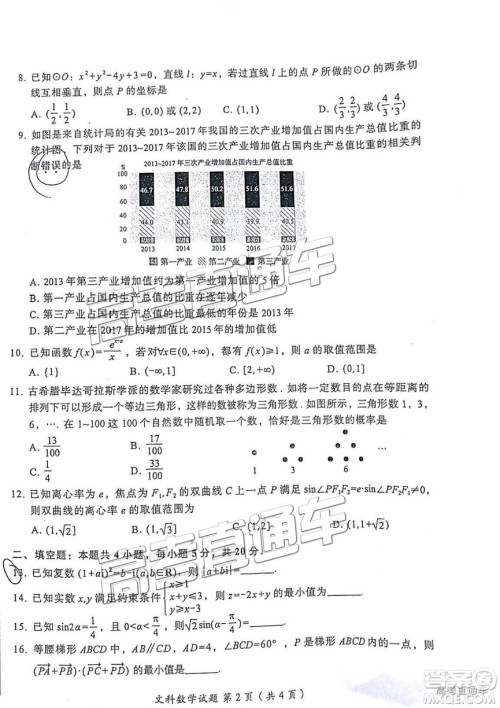 8. 已知⊙O：x²+y²-4y+3=0，直线 l：y=x，若过直线 l 上的一点 P 所做的⊙O 的两条切
线互相垂直，则点 P 的坐标是
A. (1/2,1/2) B. (0,0) 或 (2,2) C. (1,1) D. (2/3,2/3) 或 (4/3,4/3)
9. 如图是来自统计局的有关 2013~2017 年我国的三次产业增加值占国内生产总值比重的
统计图，下列对于 2013~2017 年该国的三次产业增加值占国内生产总值比重的相关判
断错误的是
2013-2017年三次产业增加值占国内生产总值比重
%
100
80
60
40
20
0
46.7 47.8 50.2 51.6 51.6
2013 2014 2015 2016 2017
第一产业 第二产业 第三产业
A. 2013 年第三产业增加值约为第一产业增加值的 5 倍
B. 第一产业占国内生产总值的比重在逐年减少
C. 第三产业占国内生产总值的比重最低的年份是 2013 年
D. 第二产业在 2017 年的增加值比 2015 年的增加值低
A. {1} B. (-∞,1] C. [2,+∞) D. (-∞,0]
11. 古希腊毕达哥拉斯学派的数学家研究过各种多边形数. 如将一定数目的点在等距离的
排列下可以形成一个等边三角形，这样的数被称为三角形数. 如图，三角形数 1，3，
6，…. 在 1~100 这 100 个自然数中随机取一个数，恰是三角形数的概率是
A. 13/100 B. 17/100
C. 1/4 D. 33/100
1 3 6
12. 已知离心率为 e，焦点为 F₁,F₂ 的双曲线 C 上一点 P 满足 sin∠PF₂F₁=e·sin∠PF₁F₂，
则双曲线的离心率的取值范围为
A. (1,√2] B. (1,√2) C. (1,2] D. (1,1+√2]
二、填空题：本题共 4 小题，每小题 5 分，共 20 分.
13. 已知复数 (1+ai)²=b-i(a,b∈R)，则 |a+bi|=
x≥1
14. 已知实数 x,y 满足约束条件 x+y≤4，则 z=-2x+y 的最小值为
x-y≤3
15. 已知 sin2α=1/4，且 0<α<π/4，则 sin(α-π/4)=
16. 等腰梯形 ABCD 中，AB∥CD，AB=4，∠ABC=60°，P 是梯形 ABCD 内部一点，则
(PA+PB)·(PC+PD) 的最小值是
文科数学试题 第 2 页（共 4 页）
高考直通车
高考直通车
高考直通车